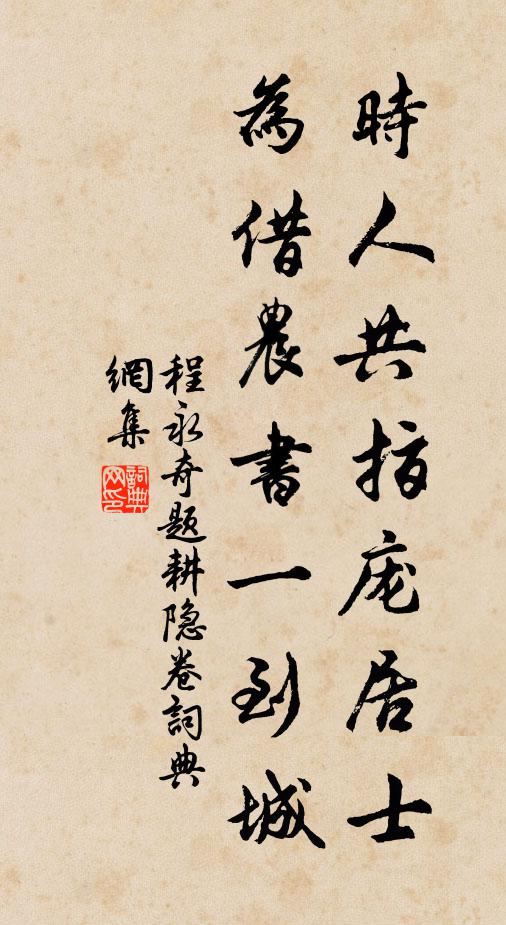 時人共指庞居士
為借農書一到城
程永奇题耕隐卷詞典
網集
詞典网印